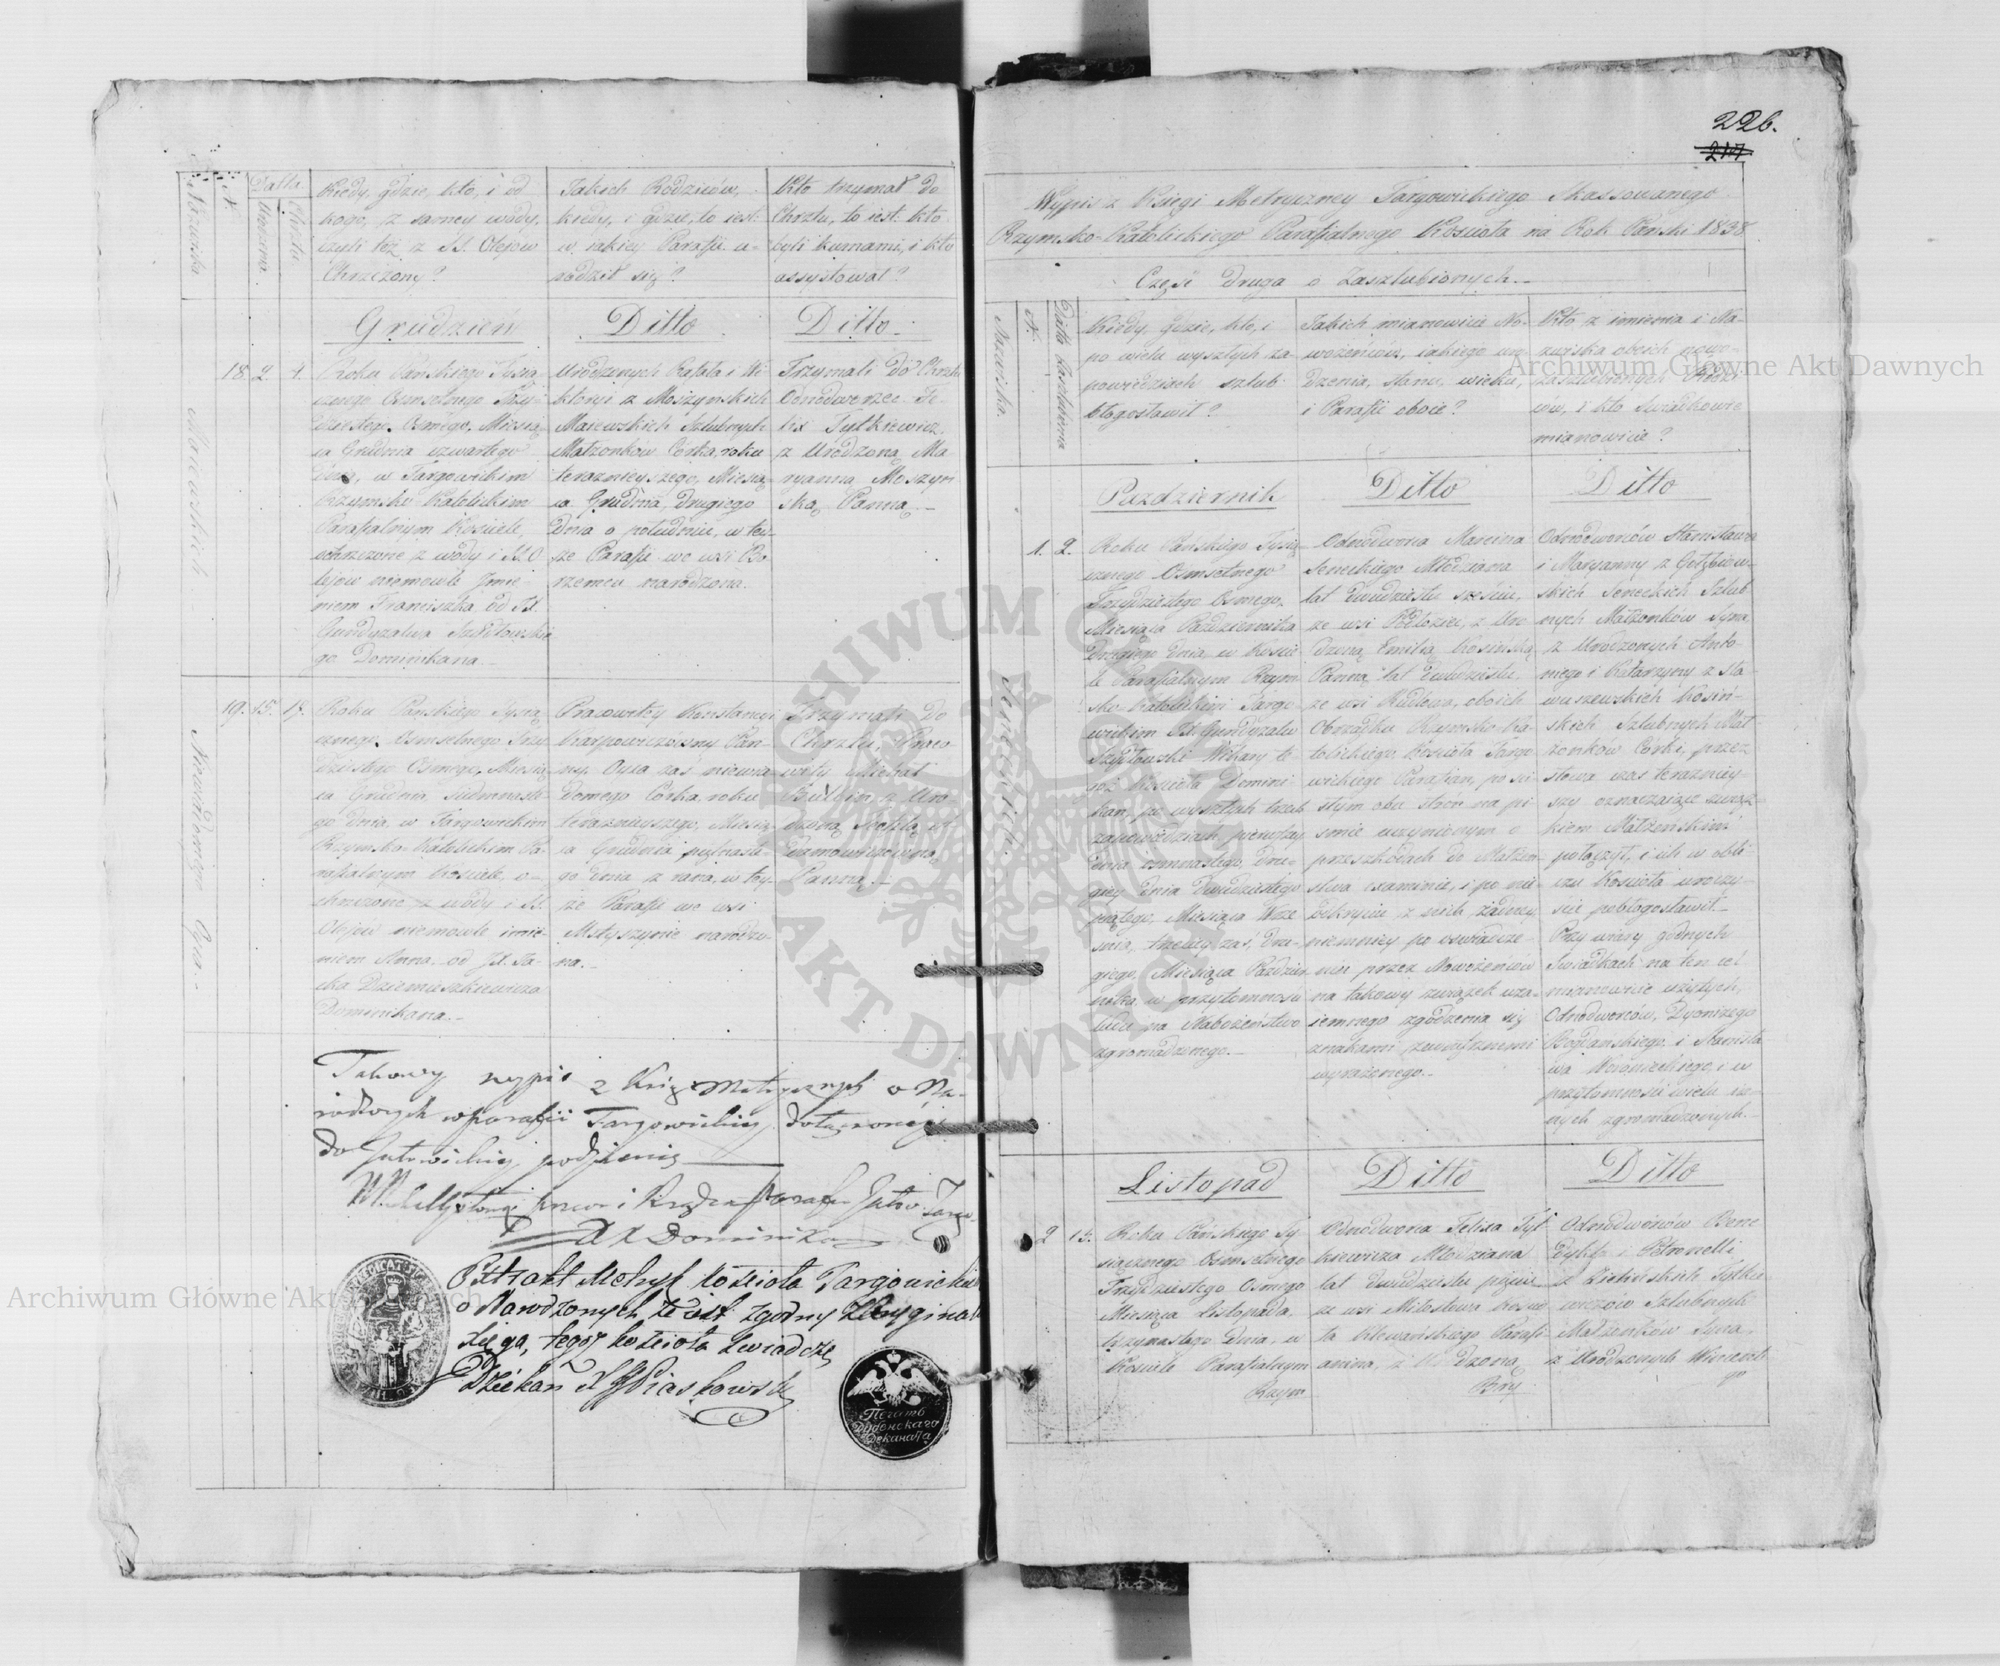 226.
217
Nazwiska
N.
Datta
Urodzenia
Chrztu
Kiedy, gdzie, kto, i od
kogo, z samey wody,
czyli też z SS. Olejów
Chrzczony?
Jakich Rodziców,
kiedy, i gdzie, to iest:
w iakiey Parafii u-
rodził się?
Kto trzymał do
Chrztu, to iest: kto
byli kumami, i kto
assystował?
Grudzień
Ditto
Ditto
Maiewskich
18. 2. 4.
Roku Pańskiego Tysią
cznego Osmsetnego Trzy
dziestego Osmego, Miesią
ca Grudnia czwartego
dnia, w Targowickim
Rzymsko Katolickim
Parafialnym Kościele,
ochrzczono z wody i SS. O
lejów niemowle Imie-
niem Franciszka od JX.
Gundyzalwa Szydłowskie
go Dominikana.
Urodzonych Rafała i Wi
ktoryi z Moszyńskich
Maiewskich Szlubnych
Małżonków Córka, roku
teraznieyszego, Miesią-
ca Grudnia, Drugiego
dnia o południu, w tey-
że Parafii we wsi Bo-
rzemcu narodzona.
Trzymali do Chrztu
Odnodworzec Fe-
lix Tylkiewicz,
z Urodzoną Ma-
ryanną Moszyń
ską Panną.
Niewiadomego Oyca.
19. 15. 17.
Roku Pańskiego Tysią
cznego Osmsetnego Trzy
dziestego Osmego, Miesią
ca Grudnia, siedmnaste-
go dnia w Targowickim
Rzymsko-Katolickim Pa-
rafialnym Kościele, o-
chrzczono z wody i SS.
Olejów niemowle imie-
niem Anna od JX. Ja-
cka Dziemieszkiewicza
Dominikana.
Pracowitey Konstancyi
Karpowiczówny Pan-
ny, Oyca zaś niewia-
domego Córka, roku
teraznieyszego, Miesią-
ca Grudnia piętnaste-
go dnia z rana, w tey-
że Parafii we wsi
Mstyszynie narodzo-
na.
Trzymali do
Chrztu, Praco-
wity Michał
z Uro-
dzoną
Panną.
Takowy wypis z Ksiąg Metrycznych o Na-
rodzonych w parafii Targowickiey dołączoney
do
Extrakt Metryk kościoła Targowickiego
o Narodzonych że iest zgodny z Oryginalną
Xięgą, tegoż kościoła zwiadczę
Dziekan X Piaskowski
Печать
Дубенскаго
Деканата
Wypis z Xięgi Metryczney Targowickiego Skassowanego
Rzymsko-Katolickiego Parafialnego Kościoła na Rok Pański 1838
Część Druga o Zaszlubionych.
Nazwiska.
N.
Datta Zaszlubienia
Kiedy, gdzie, kto, i
po wielu wyszłych za
powiedziach szlub
błogosławił?
Jakich mianowicie No-
wożeńców, iakiego uro
dzenia, stanu, wieku,
i Parafii oboie?
Kto z imienia i Na-
zwiska oboich nowo-
zaszlubionych Rodzi
ców, i kto Swiadkowie
mianowicie?
Pazdziernik
Ditto
Ditto
Seneckich.
1. 2.
Roku Pańskiego Tysią-
cznego Osmsetnego
Trzydziestego Osmego,
Miesiąca Pazdziernika
Drugiego dnia, w Koście
le Parafialnym Rzym
sko Katolickim Targo-
wickim JX. Gundyzalw
Szydłowski Wikary te-
goż Kościoła Domini-
kan, po wyszłych trzech
zapowiedziach, pierwszey
dnia osmnastego, dru-
giey dnia dwudziestego
piątego, Miesiąca Wrze
snia, trzeciey zaś, dru-
giego, Miesiąca Pazdzier
nika, w przytomności
ludu na Nabożeństwo
zgromadzonego.
Odnodworca Marcina
Seneckiego Młodziana
lat dwudziestu sześciu,
ze wsi z Uro
dzoną Emilią Kosińską
Panną lat dwudziestu,
ze wsi Rudlewa, oboich
Obrządku Rzymsko-Ka
tolickiego, Kościoła Targo
wickiego Parafian, po ści
słym obu stron na pi
smie uczynionym o
przeszkodach do Małżeń
stwa examinie, i po nie
odkryciu z nich żadney,
niemniey po oswiadcze
niu przez Nowożeńców
na takowy związek wza-
iemnego zgodzenia się
znakami zewnętrznemi
wyrażonego.
Odnodworców Stanisława
i Maryanny z Gołębiow-
skich Seneckich Szlub-
nych Małżonków Syna,
z Urodzonych Anto-
niego i Katarzyny z Sta-
wuszewskich Kosiń-
skich Szlubnych Mał
żonków Córkę, przez
słowa czas teraznięy-
szy oznaczaiące związ-
kiem Małżeńskim
połączył, i ich w obli-
czu Kościoła uroczy-
ście pobłogosławił.
Przy wiary godnych
Swiadkach na ten cel
mianowicie użytych,
Odnodworców, Dyonizego
Bogdańskiego, i Stanisła
wa Woronieckiego, i w
przytomności wielu in-
nych zgromadzonych.
Listopad
Ditto
Ditto
2 13.
Roku Pańskiego Ty
siącznego Osmsetnego
Trzydziestego Osmego
Miesiąca Listopada,
trzynastego dnia, w
Kościele Parafialnym
Rzym
Odnodworca Felixa Tyl
kiewicza Młodziana
lat dwudziestu pięciu
ze wsi Miłostowa Kościo
ła Klewańskiego Parafi
anina, z Urodzoną
Odnodworców Bene
dykta i Petronelli
z Tylkie
wiczów Szlubnych
Małżonków Syna,
z Urodzonych Wincente
go
Archiwum Główne Akt Dawnych
Archiwum Główne Akt Dawnych
ARCHIWUM GŁÓWNE
AKT DAWNYCH